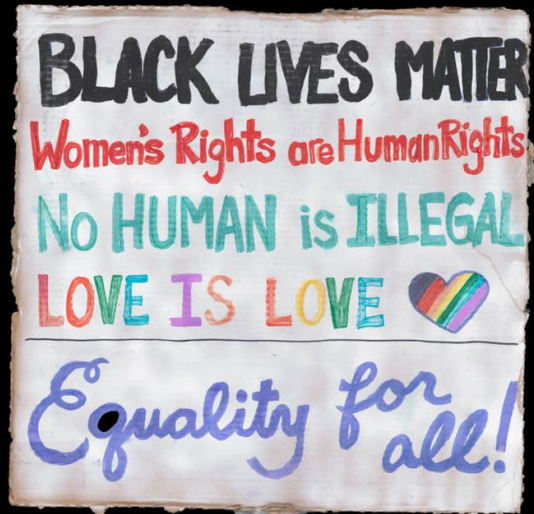 BLACK LIVES MATTER
Women's Rights are Human Rights
No HUMAN is ILLEGAL
LOVE IS LOVE
Equality for
all!